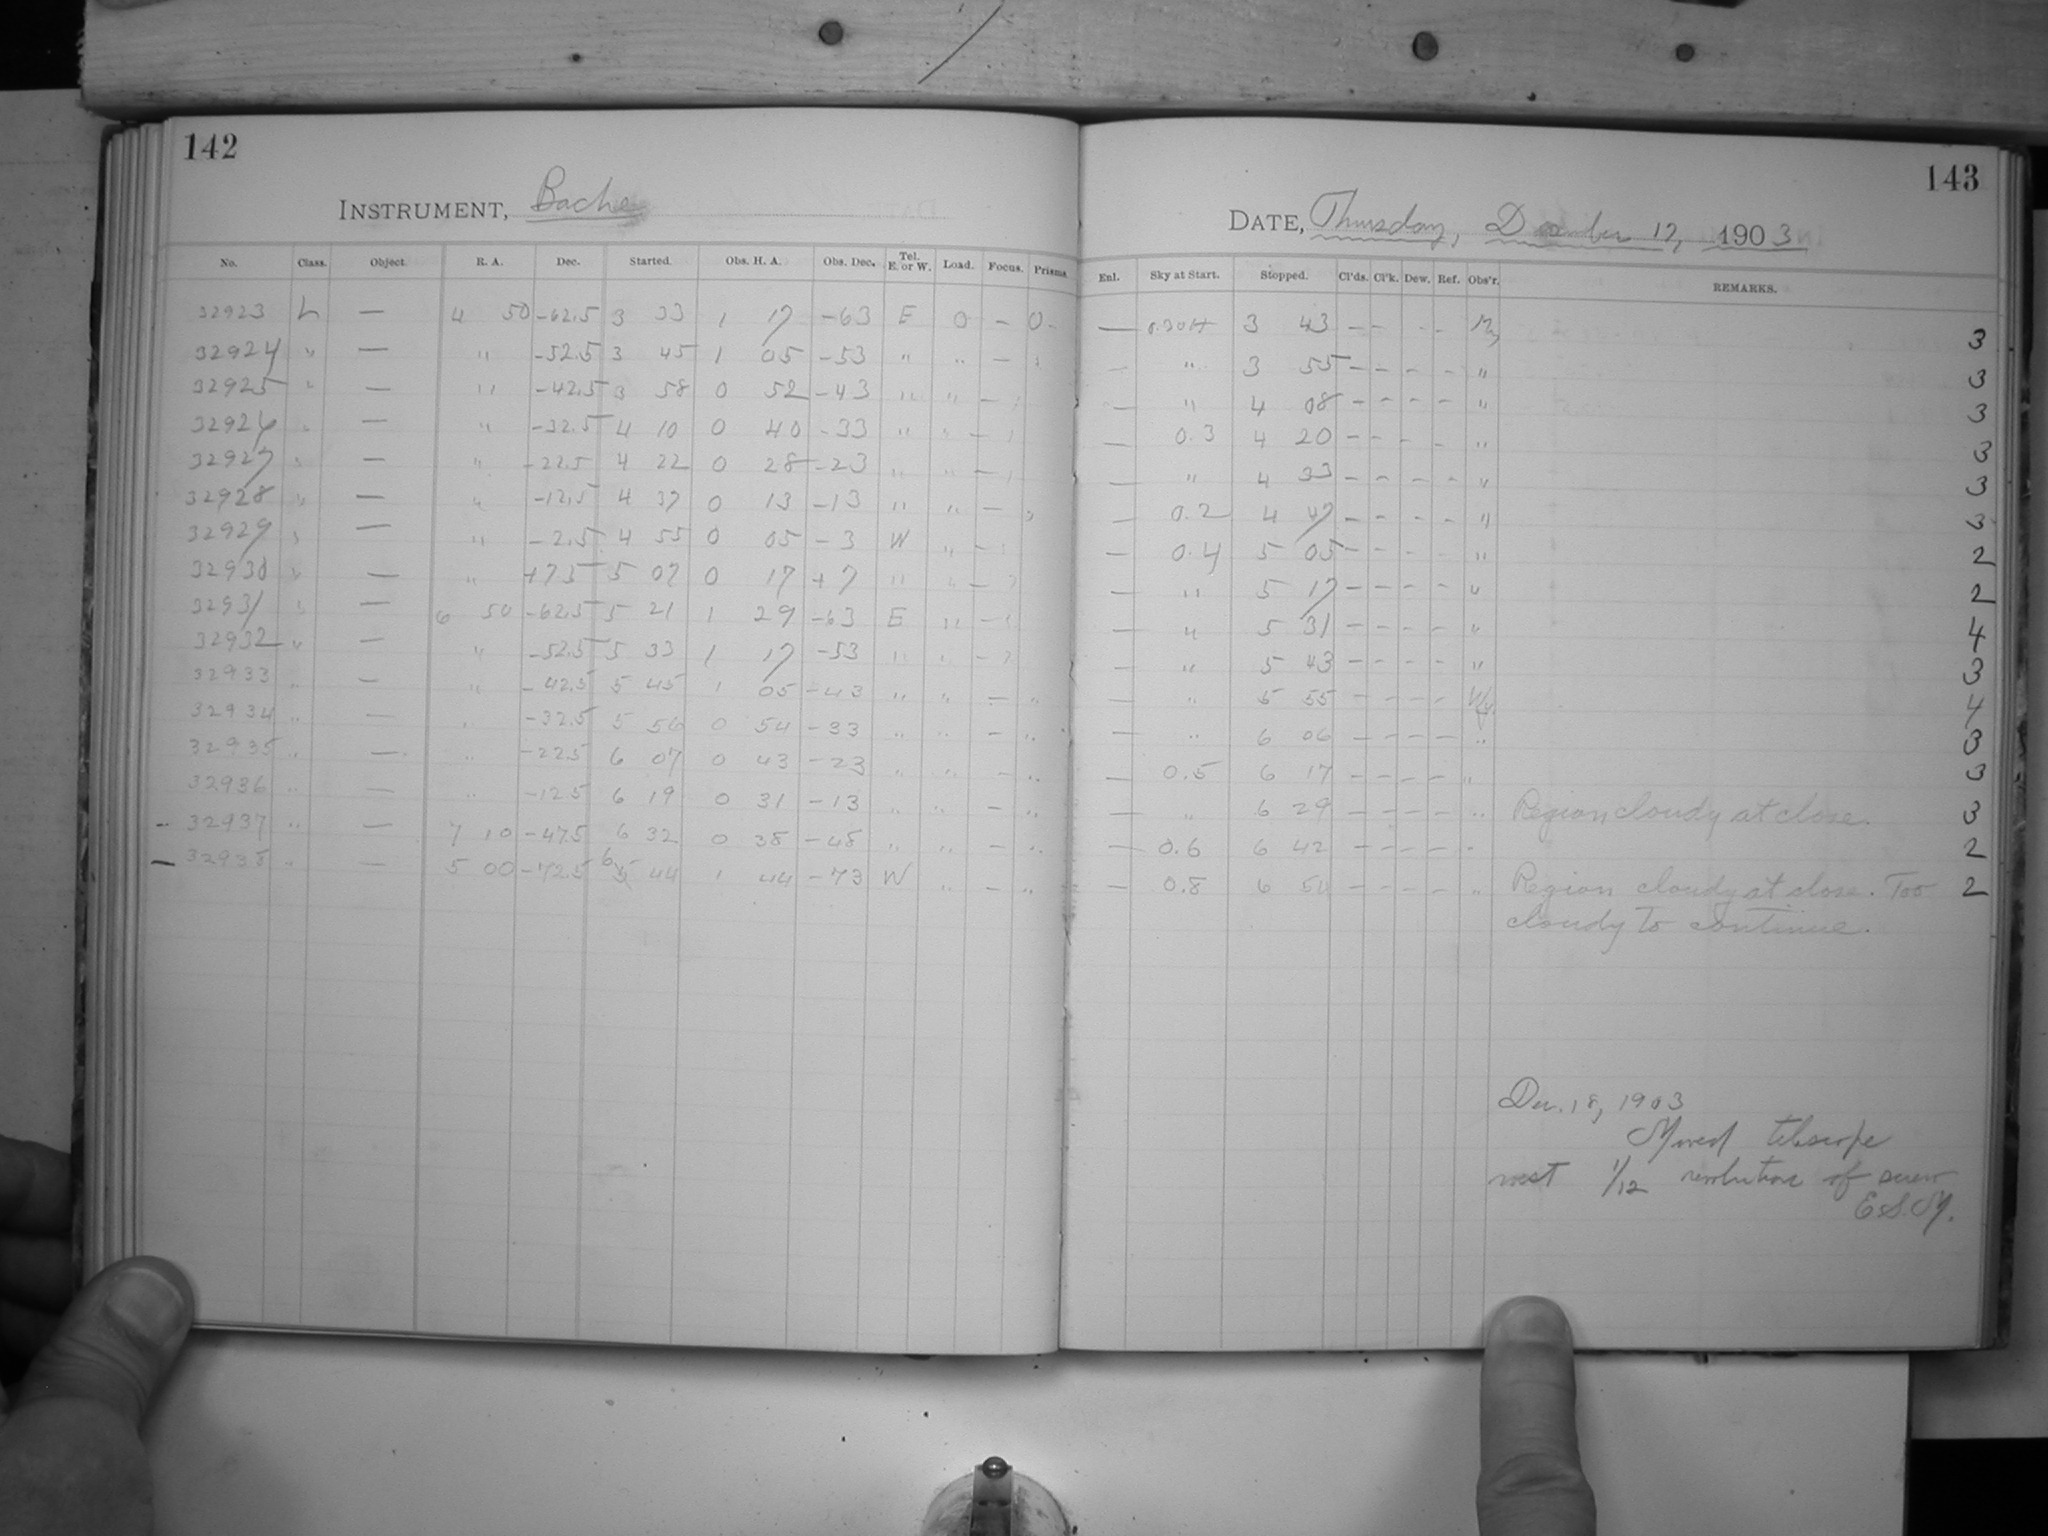 142
INSTRUMENT, Bache
No. Class. Object. R. A. Dec. Started. Obs. H. A. Obs. Dec. Tel. E. or W. Load. Focus. Prisms.
32923 L — 4 50 -62.5 3 33 1 17 -63 E 0 - 0
32924 " — " -52.5 3 45 1 05 -53 " " -
32925 " — " -42.5 3 58 0 52 -43 " " -
32926 " — " -32.5 4 10 0 40 -33 " " -
32927 " — " -22.5 4 22 0 28 -23 " " -
32928 " — " -12.5 4 37 0 13 -13 " " - "
32929 " — " -2.5 4 55 0 05 -3 W " -
32930 " — " +7.5 5 07 0 17 +7 " " -
32931 " — 6 50 -62.5 5 21 1 29 -63 E " -
32932 " — " -52.5 5 33 1 17 -53 " " -
32933 " — " -42.5 5 45 1 05 -43 " " - "
32934 " — " -32.5 5 56 0 54 -33 " " - "
32935 " — " -22.5 6 07 0 43 -23 " " - "
32936 " — " -12.5 6 19 0 31 -13 " " - "
32937 " — 7 10 -47.5 6 32 0 38 -48 " " - "
32938 " — 5 00 -72.5 6 44 1 44 -73 W " - "
143
DATE, Thursday, December 17, 1903
Enl. Sky at Start. Stopped. Cl'ds. Cl'k. Dew. Ref. Obs'r. REMARKS.
— 3 43 - - - - 3
— " 3 55 - - - - " 3
— " 4 08 - - - - " 3
— 0.3 4 20 - - - - " 3
— " 4 33 - - - - " 3
— 0.2 4 47 - - - - " 3
— 0.4 5 05 - - - - " 2
— " 5 17 - - - - " 2
— " 5 31 - - - - " 4
— " 5 43 - - - - " 3
— " 5 55 - - - - 4
— " 6 06 - - - - " 3
— 0.5 6 17 - - - - " 3
— " 6 29 - - - - " Region cloudy at close. 3
— 0.6 6 42 - - - - " 2
— 0.8 6 - - - - " Region cloudy at close. Too 2
cloudy to continue.
Dec. 18, 1903
Moved telescope
west 1/12 revolution of screw
E.S.M.